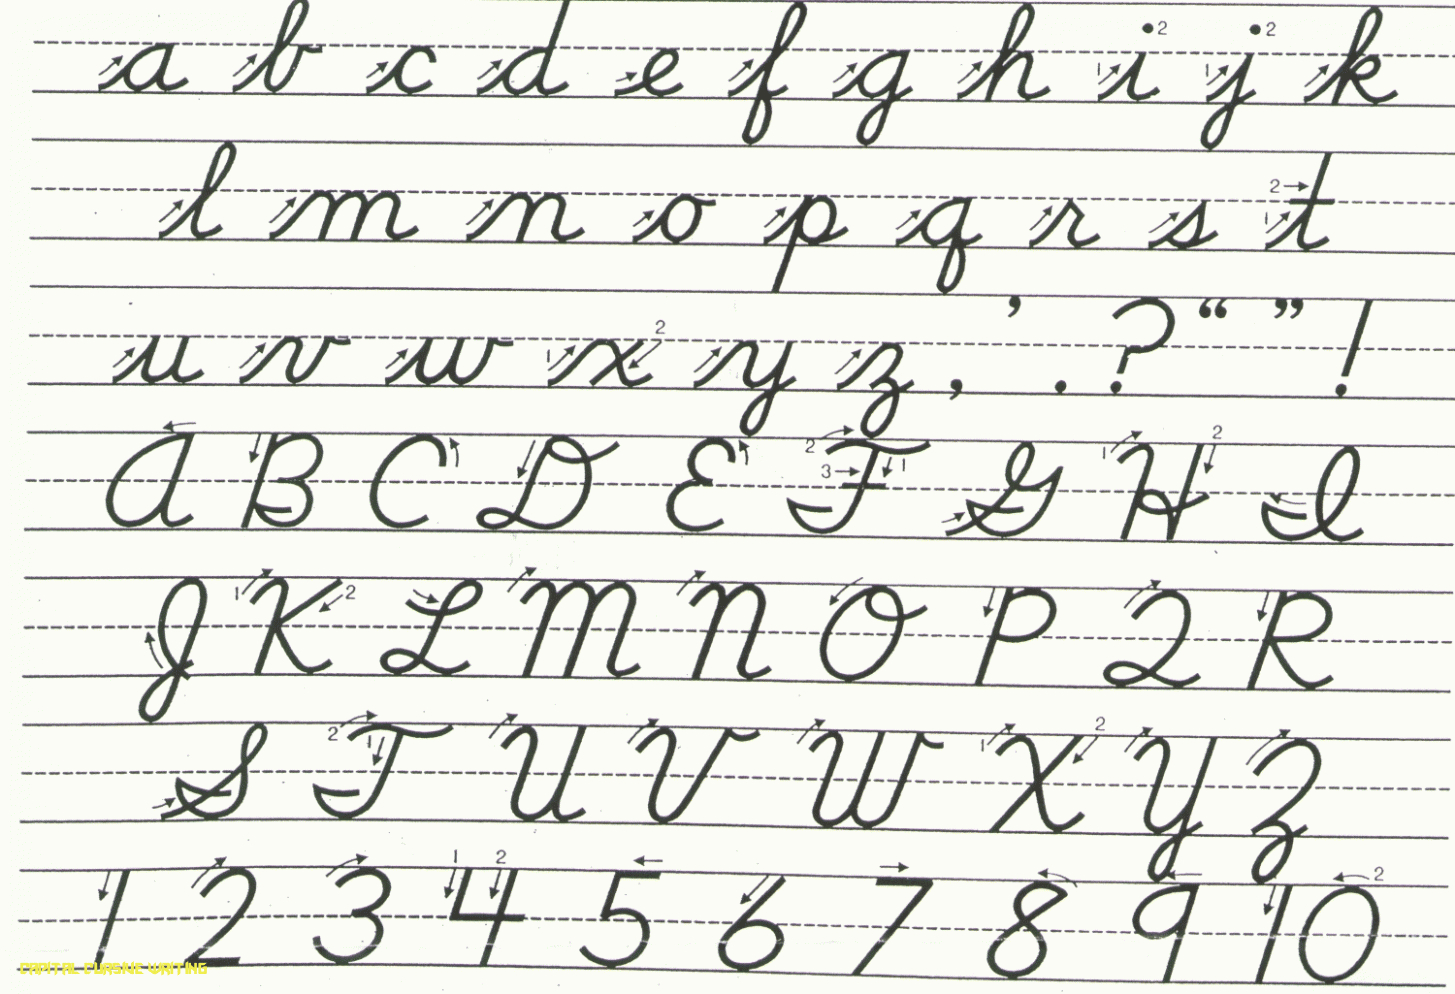 a b c d e f g h i j k
l m n o p q r s t
u v w x y z , ’ . ? “ ” !
A B C D E F G H I
J K L M N O P Q R
S T U V W X Y Z
1 2 3 4 5 6 7 8 9 10
CAPITAL CURSIVE WRITING